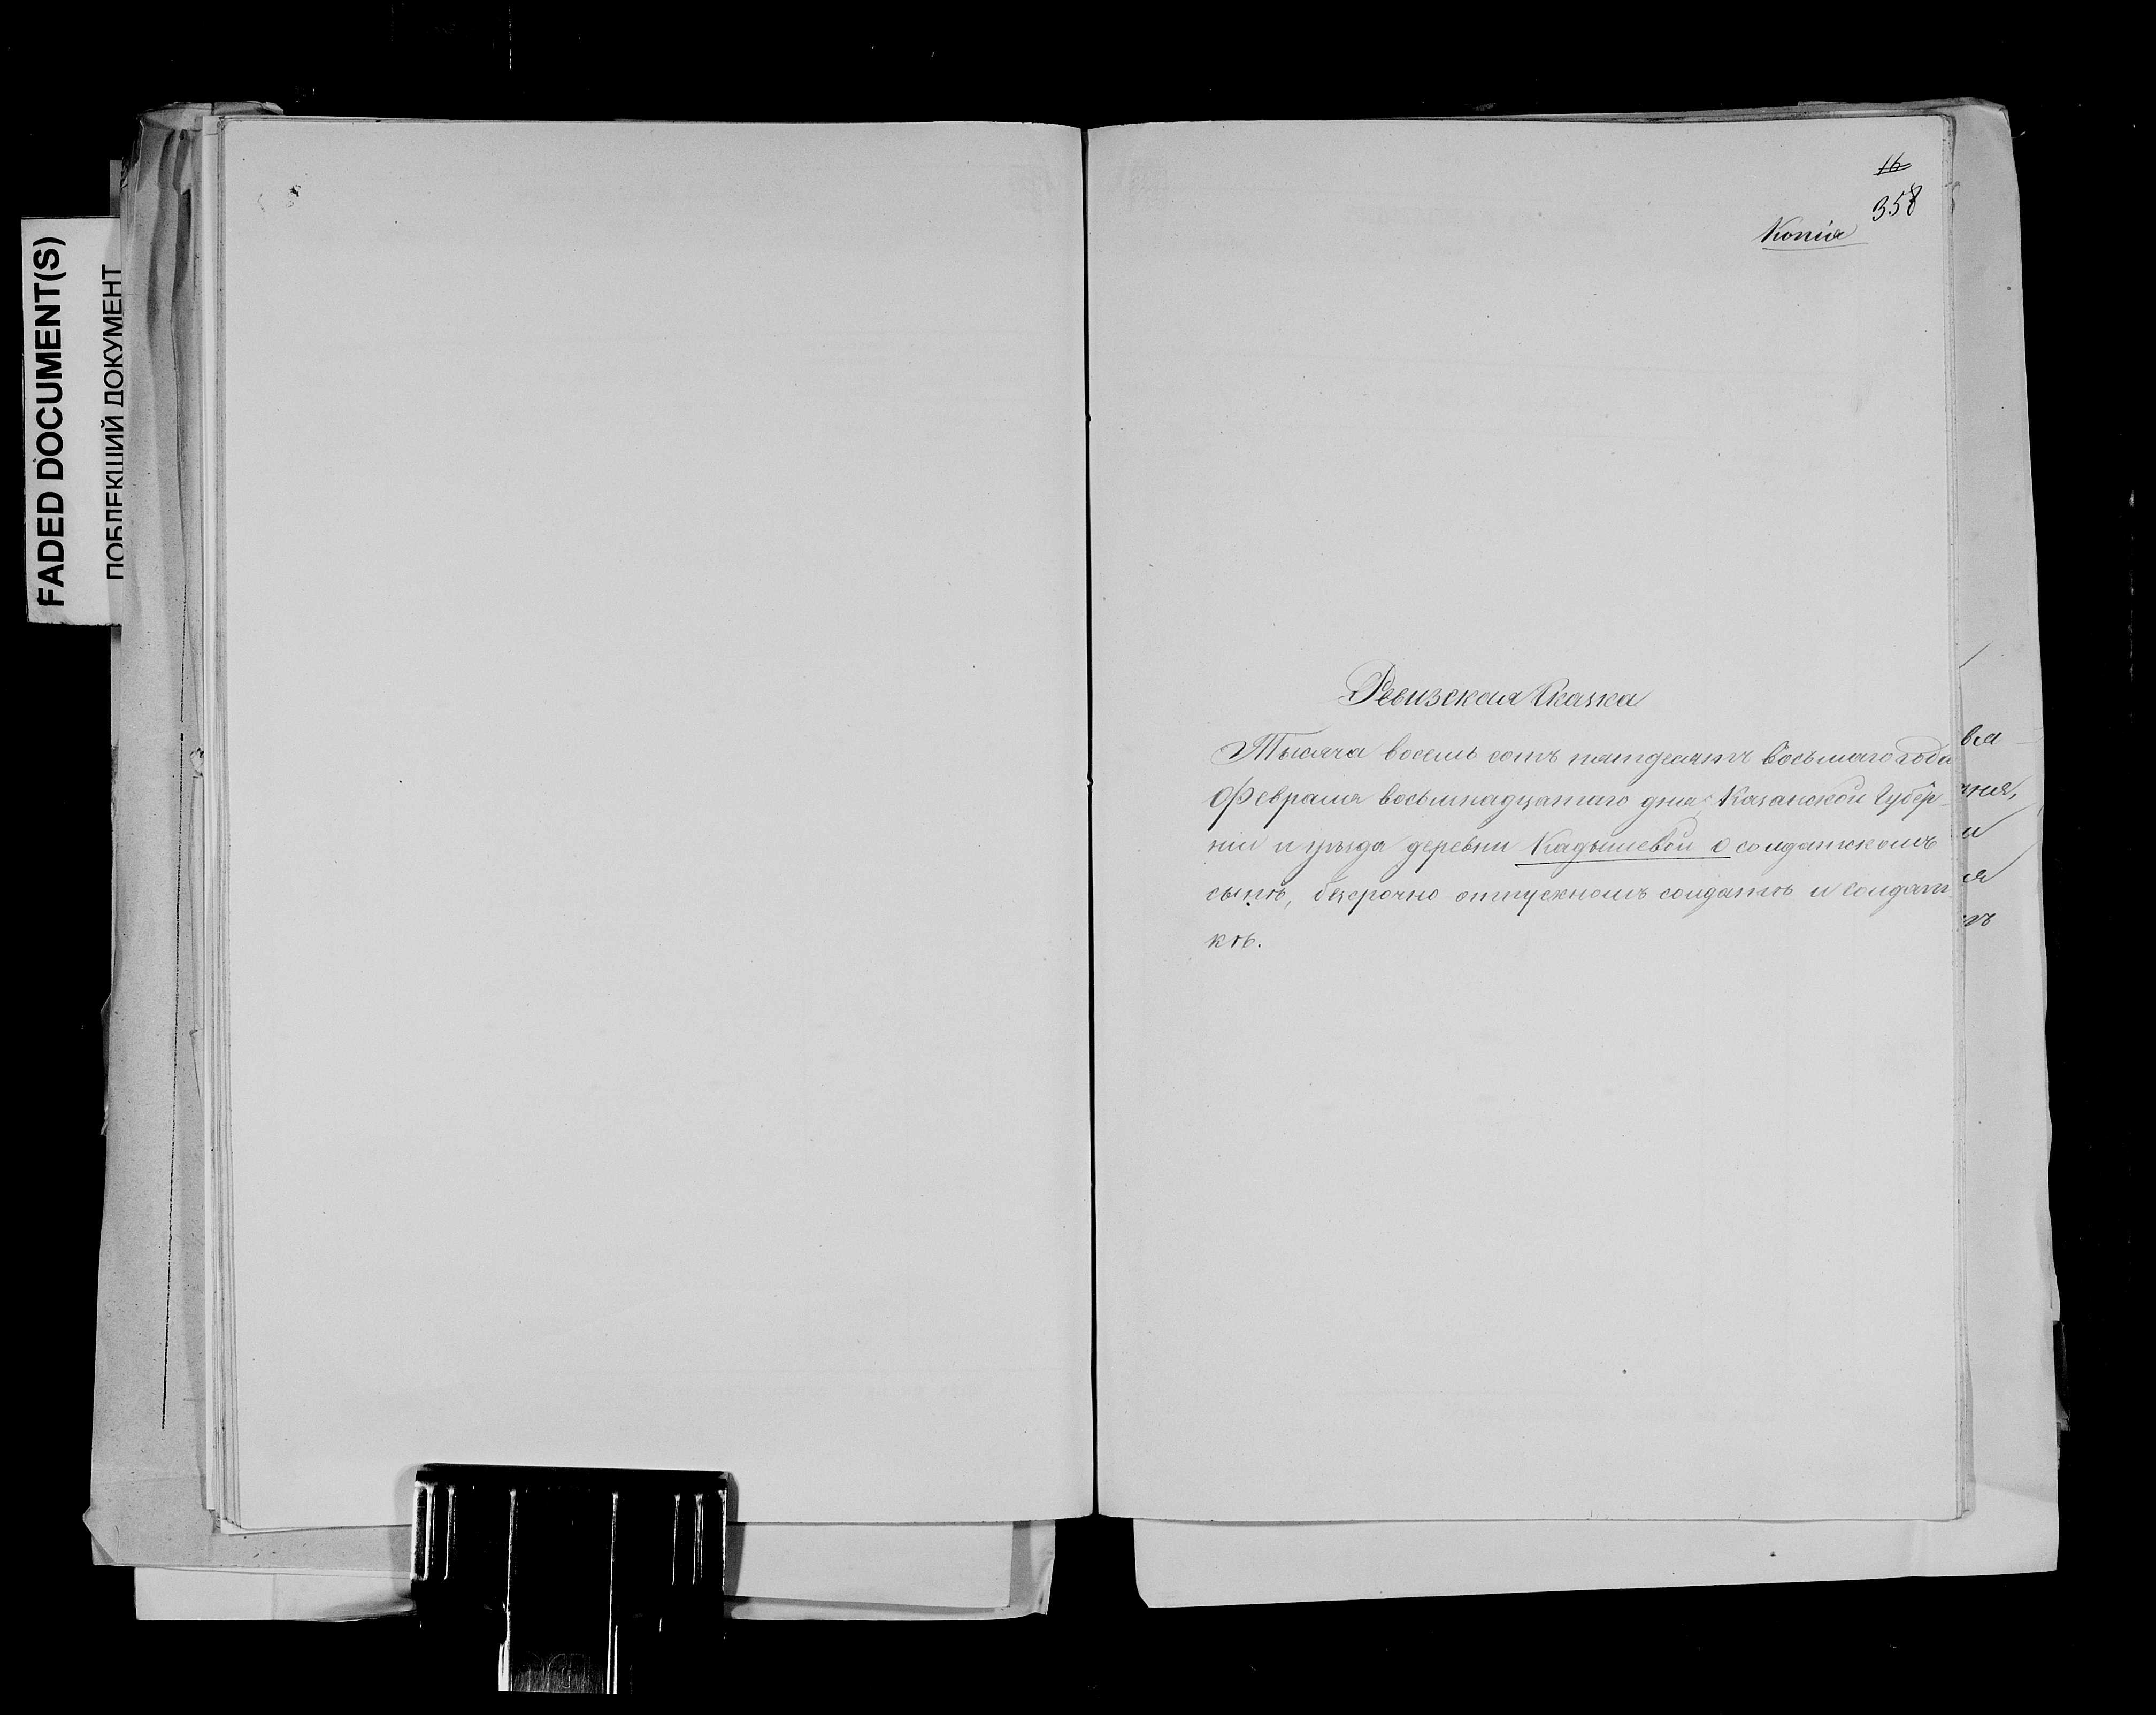 FADED DOCUMENT(S)
ПОБЛЕКШИЙ ДОКУМЕНТ
16
358
Копія
Ревизская Сказка
Тысяча восемь сотъ пятдесятъ восьмаго года
Февраля восьмнадцатаго дня, Казанской Губер-
ніи и уѣзда деревни Кадышевой о солдатскомъ
сынѣ, безсрочно отпускномъ солдатѣ и солдат-
кѣ.